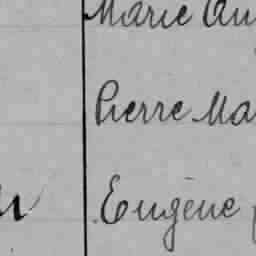 Marie
Pierre Ma
Eugène